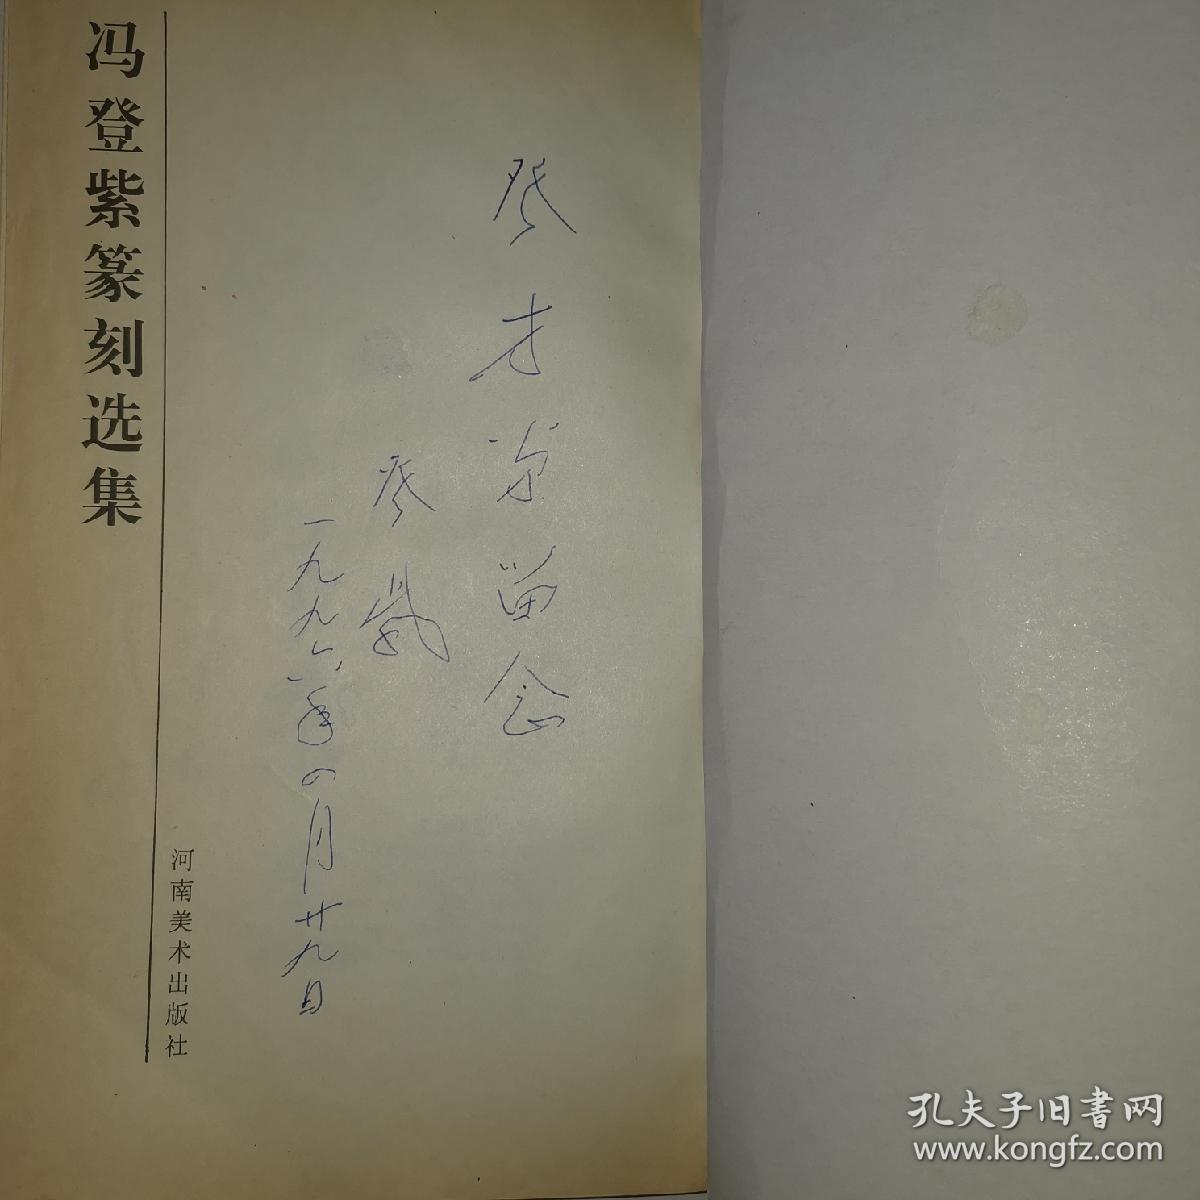 冯登紫篆刻选集
河南美术出版社
才弟留念
一九九六年四月廿九日
孔夫子旧书网
www.kongfz.com